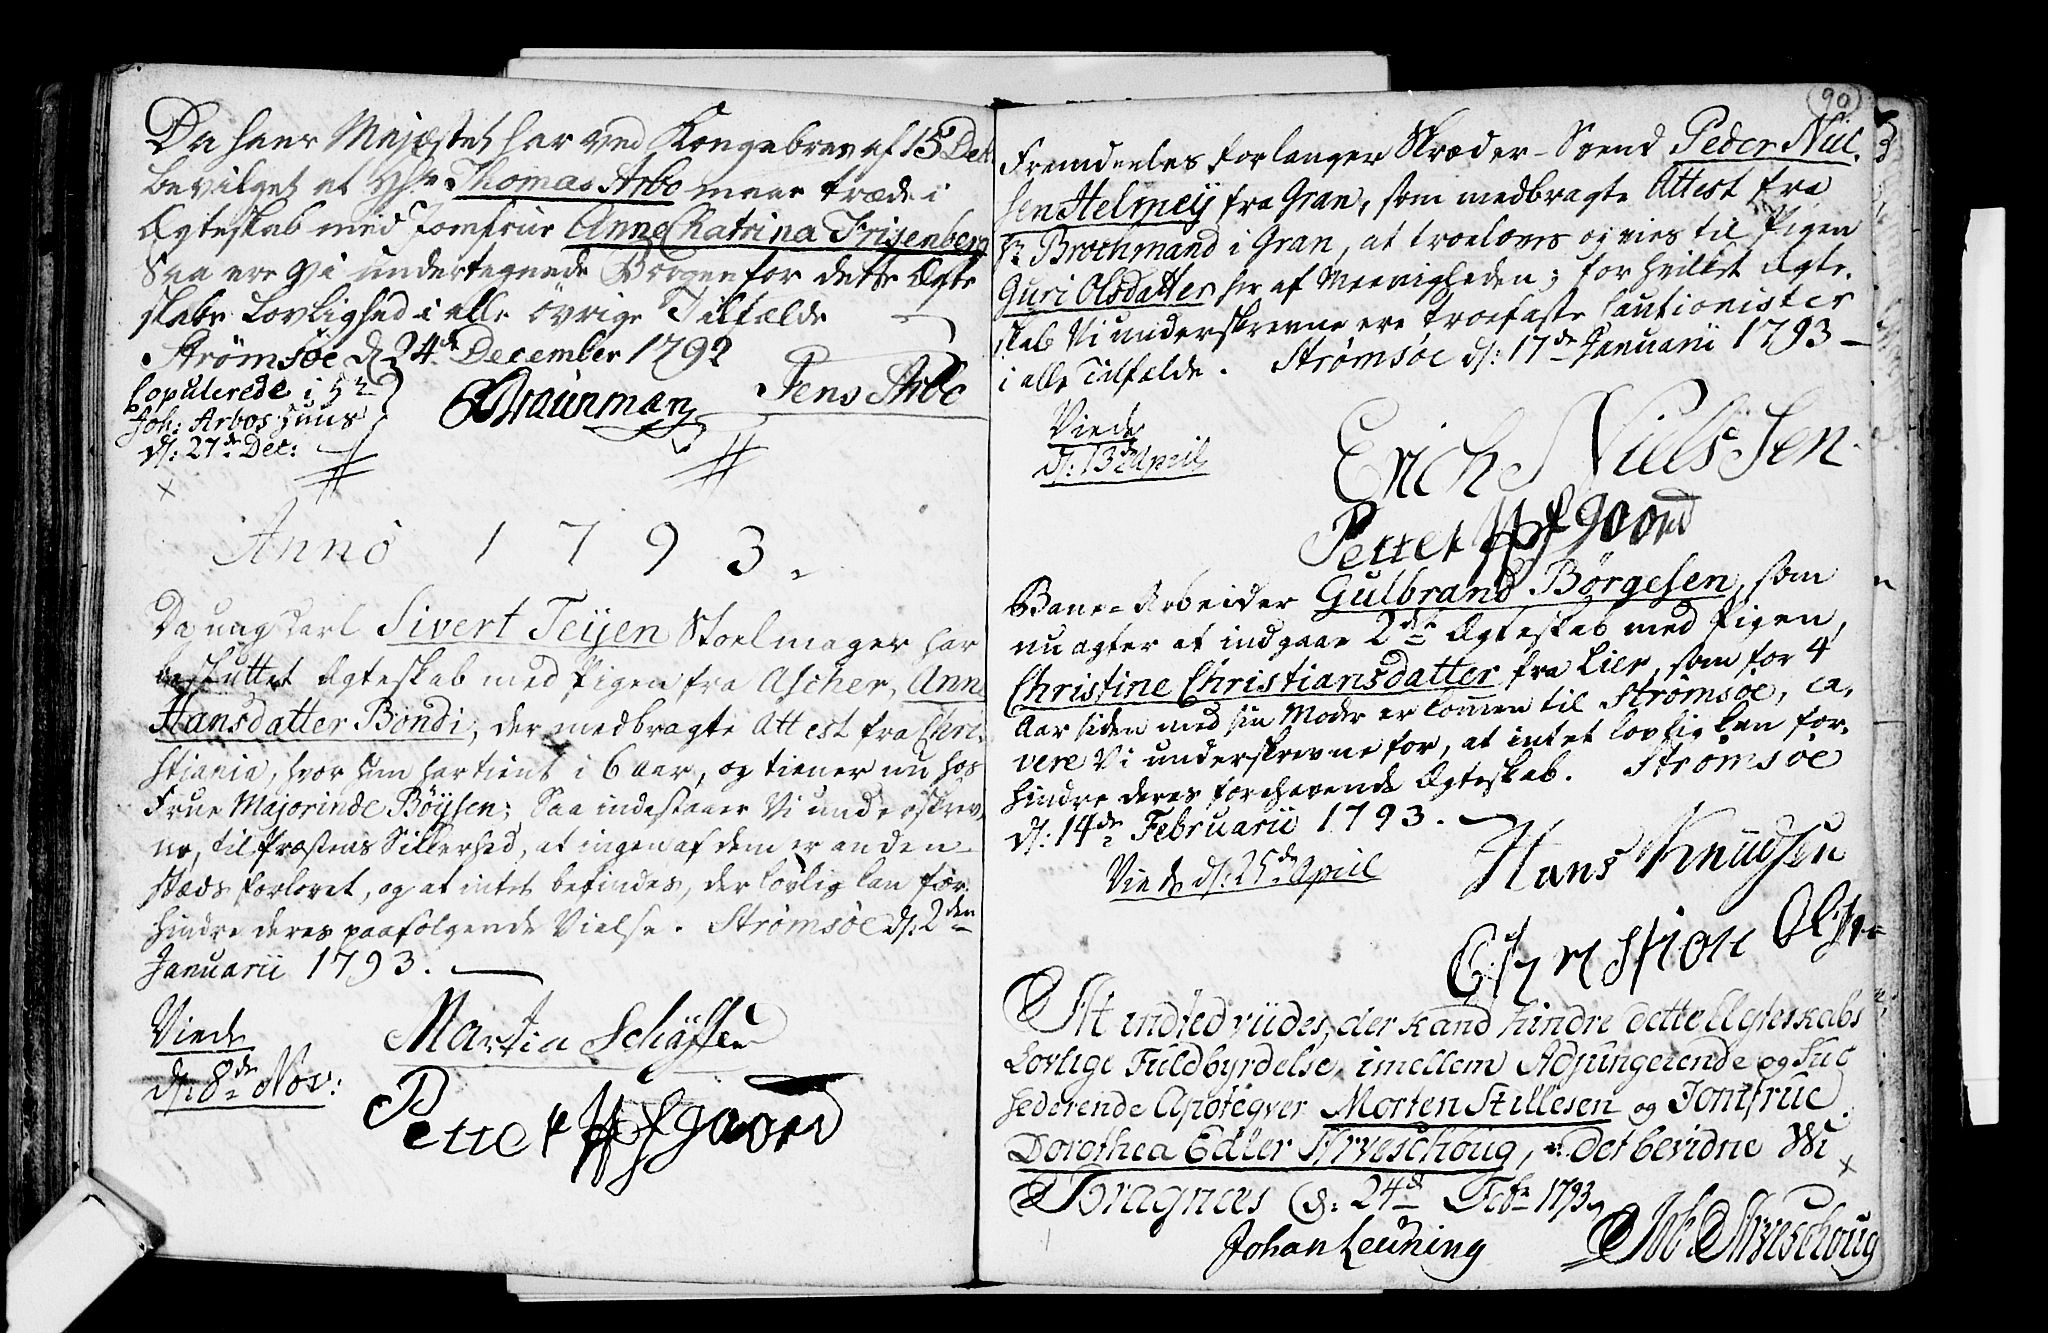 Da hans Majestet har ved Kongebrev af 15 Dec.
bevilget at Hr. Thomas Arbo maae træde i
Ægteskab med Jomfrue Anne Chatrina Frisenberg
Saa ere Vi undertegnede Borgen for dette Ægte
skabs Lovlighed i alle övrige Tilfælde
Strømsøe d. 24de December 1792
Copulerede i Hr
Joh: Arbos Huus
d: 27de Dec:
Jens Arbo
Anno 1793.
Da ung Karl Sivert Teijen Stoelmager har
besluttet Ægteskab med Pigen fra Ascher, Anne
Hansdatter Bondi, der medbragte Attest fra Chri-
stiania, hvor hun har tient i 6 Aar, og tiener nu hos
Frue Majorinde Böysen; Saa indestaaer Vi underskrev
ne, til Præstens Sikkerhed, at ingen af dem er anden-
stæds forlovet, og at intet befindes, der lovlig kan for-
hindre deres paafølgende Vielse. Strømsøe d: 2den
Januarii 1793.
Viede
d: 8de Nov:
Martin Schäffer
Petter Hofgaard
90
Fremdeeles forlanger Skræder-Svend Peder Niel-
sen Helmey fra Gran, som medbragte Attest fra
Hr. Brochmand i Gran, at troeloves og vies til Pigen
Guri Olsdatter her af Meenigheden; for hvilket Ægte-
skab Vi underskrevne ere troefaste Cautionister
i alle Tilfælde. Strømsøe d: 17de Januarii 1793
Viede
d: 13de April
Erich Nielssen
Petter Hofgaard
Bane-Arbeider Gulbrand Börgesen, som
nu agter at indgaae 2det Ægteskab med Pigen,
Christine Christiansdatter fra Lier, som for 4
Aar siden med sin Moder er kommen til Strømsøe, ca-
vere Vi underskrevne for, at intet lovlig kan for-
hindre deres forehavende Ægteskab. Strømsøe
d: 14de Februarii 1793.
Viede d: 25de April
Hans Knudsen
Christian Olsen
At indted viides, der kand hindre dette Ægteskabs
Lovlige Fuldbyrdelse, imellem Adjungerende og Suc
sederende Apoteqver Morten Stillesen og Jomfrue
Dorothea Edler Arveschoug, det bevidne Wi
Bragnæs d: 24de Febr 1793
Johan Leuning
Arveschoug